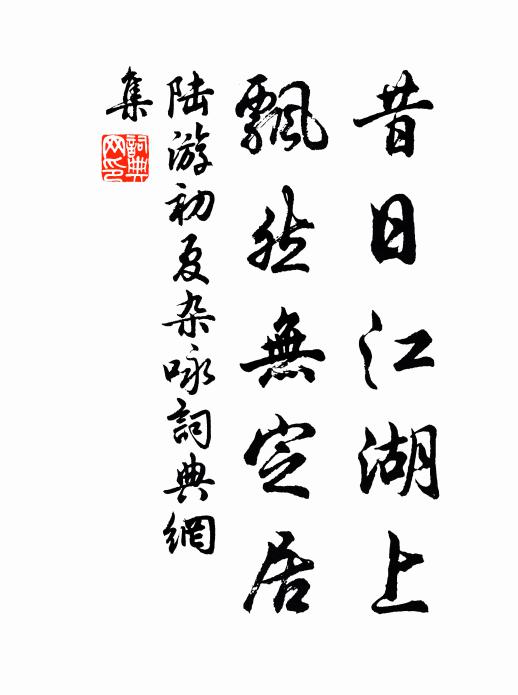 昔日江湖上
飄然無定居
陸游初夏杂咏詞典網
集
詞典
网印